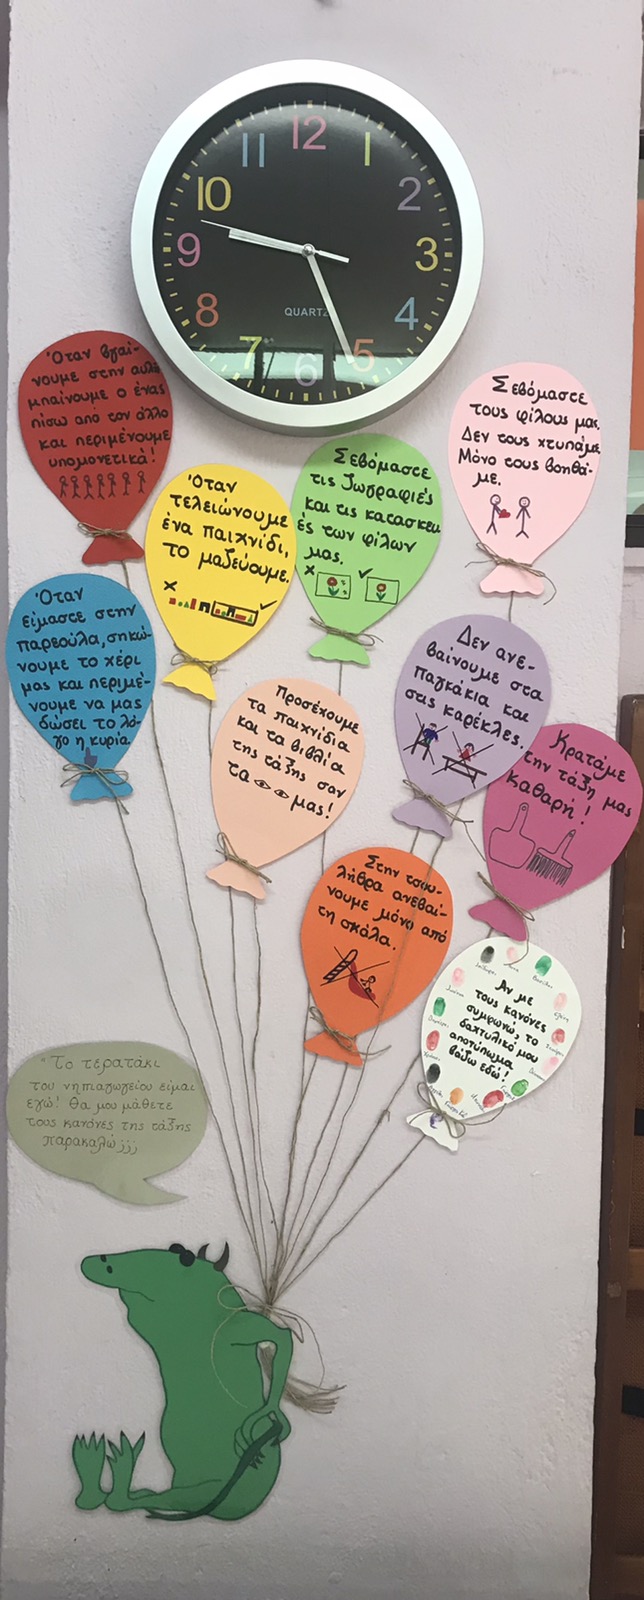 12
11
1
10
2
9
3
8
4
7
5
6
QUARTZ
Όταν βγαί-
νουμε στην αυλή
μπαίνουμε ο ένας
πίσω από τον άλλο
και περιμένουμε
υπομονετικά!
Σεβόμαστε
τους φίλους μας.
Δεν τους χτυπάμε.
Μόνο τους βοηθά-
με.
Όταν
τελειώνουμε
ένα παιχνίδι,
το μαζεύουμε.
Σεβόμαστε
τις ζωγραφιές
και τις κατασκευ
ές των φίλων
μας.
Όταν
είμαστε στην
παρεούλα, σηκώ-
νουμε το χέρι
μας και περιμέ-
νουμε να μας
δώσει το λό-
γο η κυρία.
Δεν ανε-
βαίνουμε στα
παγκάκια και
στις καρέκλες.
Προσέχουμε
τα παιχνίδια
και τα βιβλία
της τάξης σαν
τα μας!
Κρατάμε
την τάξη μας
καθαρή!
Στην τσου-
λήθρα ανεβαί-
νουμε μόνο από
τη σκάλα.
Αν με
τους κανόνες
συμφωνώ, το
δαχτυλικό μου
αποτύπωμα
βάζω εδώ!
"Το τερατάκι
του νηπιαγωγείου είμαι
εγώ! Θα μου μάθετε
τους κανόνες της τάξης
παρακαλώ;;;